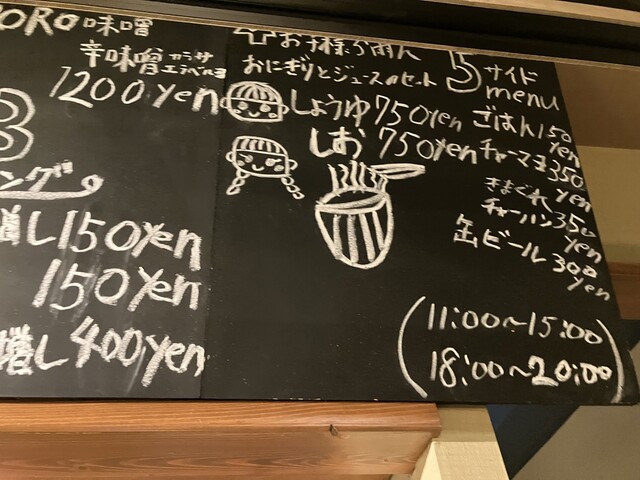 ORO味噌
辛味噌 カラサ
エラベル
1200yen
3
ング
し150yen
150yen
増し400yen
お子様らーめん
おにぎりとジュースのセット
しょうゆ750yen
しお 750yen
5 サイド
menu
ごはん150
yen
チャーマヨ350
yen
きまぐれ
チャーハン350
yen
缶ビール 300
yen
(11:00~15:00
18:00~20:00)